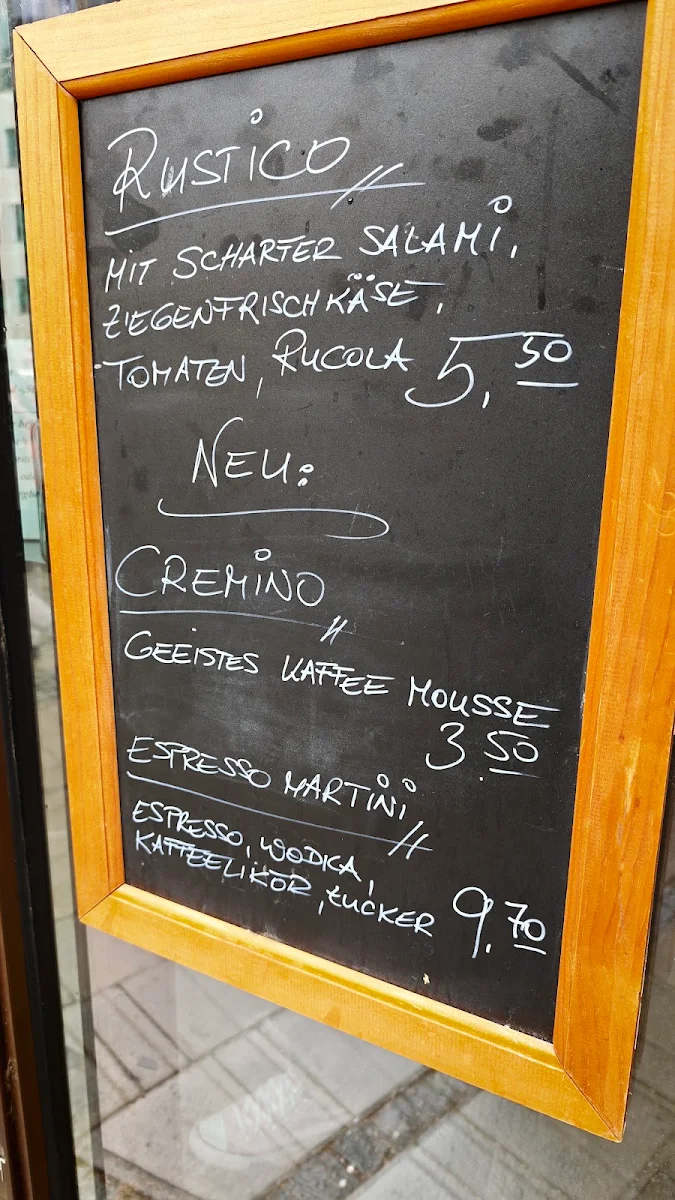 RUSTICO
MIT SCHARFER SALAMI,
ZIEGENFRISCHKÄSE,
TOMATEN, RUCOLA 5,50
NEU:
CREMINO
GEEISTES KAFFEE MOUSSE
3.50
ESPRESSO MARTINI
ESPRESSO, WODKA,
KAFFEELIKÖR, ZUCKER 9,70